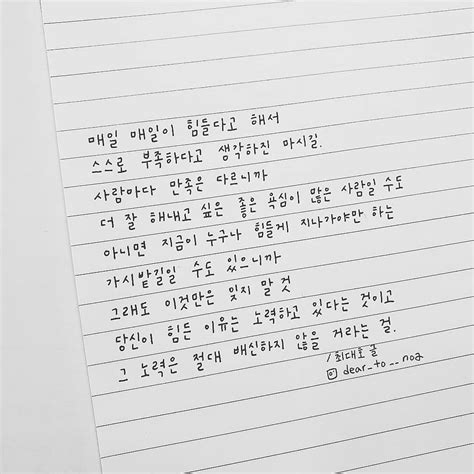 매일 매일이 힘들다고 해서
스스로 부족하다고 생각하진 마시길.
사람마다 만족은 다르니까
더 잘 해내고 싶은 좋은 욕심이 많은 사람일 수도
아니면 지금이 누구나 힘들게 지나가야만 하는
가시밭길일 수도 있으니까
그래도 이것만은 잊지 말 것
당신이 힘든 이유는 노력하고 있다는 것이고
그 노력은 절대 배신하지 않을 거라는 걸.
/ 최대호 글
dear_to__noa